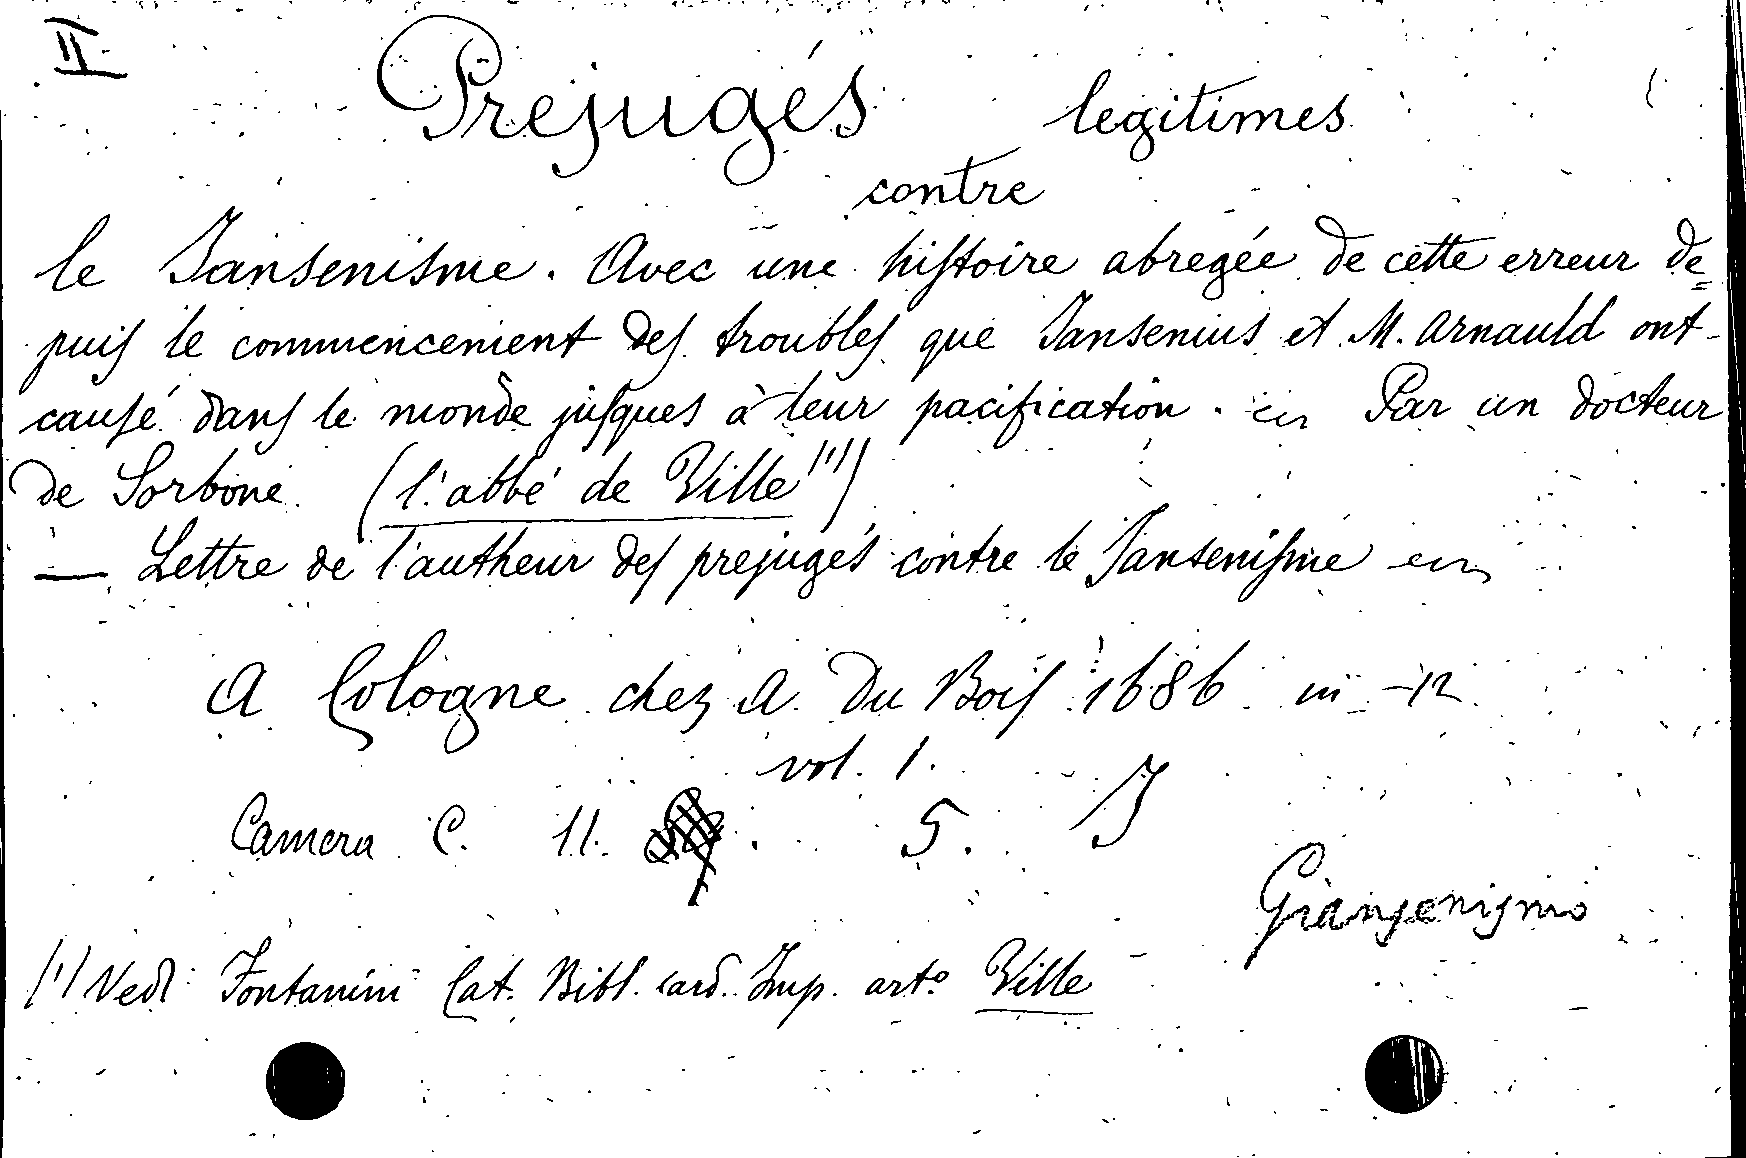 II
Prejugés legitimes
contre
le Jansenisme. Avec une histoire abregée de cette erreur de=
puis le commencement des troubles que Jansenius et M. Arnauld ont
causé dans le monde jusques à leur pacification. Par un docteur
de Sorbone. (l'abbé de Ville (1))
— Lettre de l'autheur des prejugés contre le Jansenisme
A Cologne chez A. Du Bois 1686 in-12
vol. 1.
Camera C. 11. 5. J
Giansenismo
(1) Vedi Fontanini Cat. Bibl. card. Imp. art.º Ville